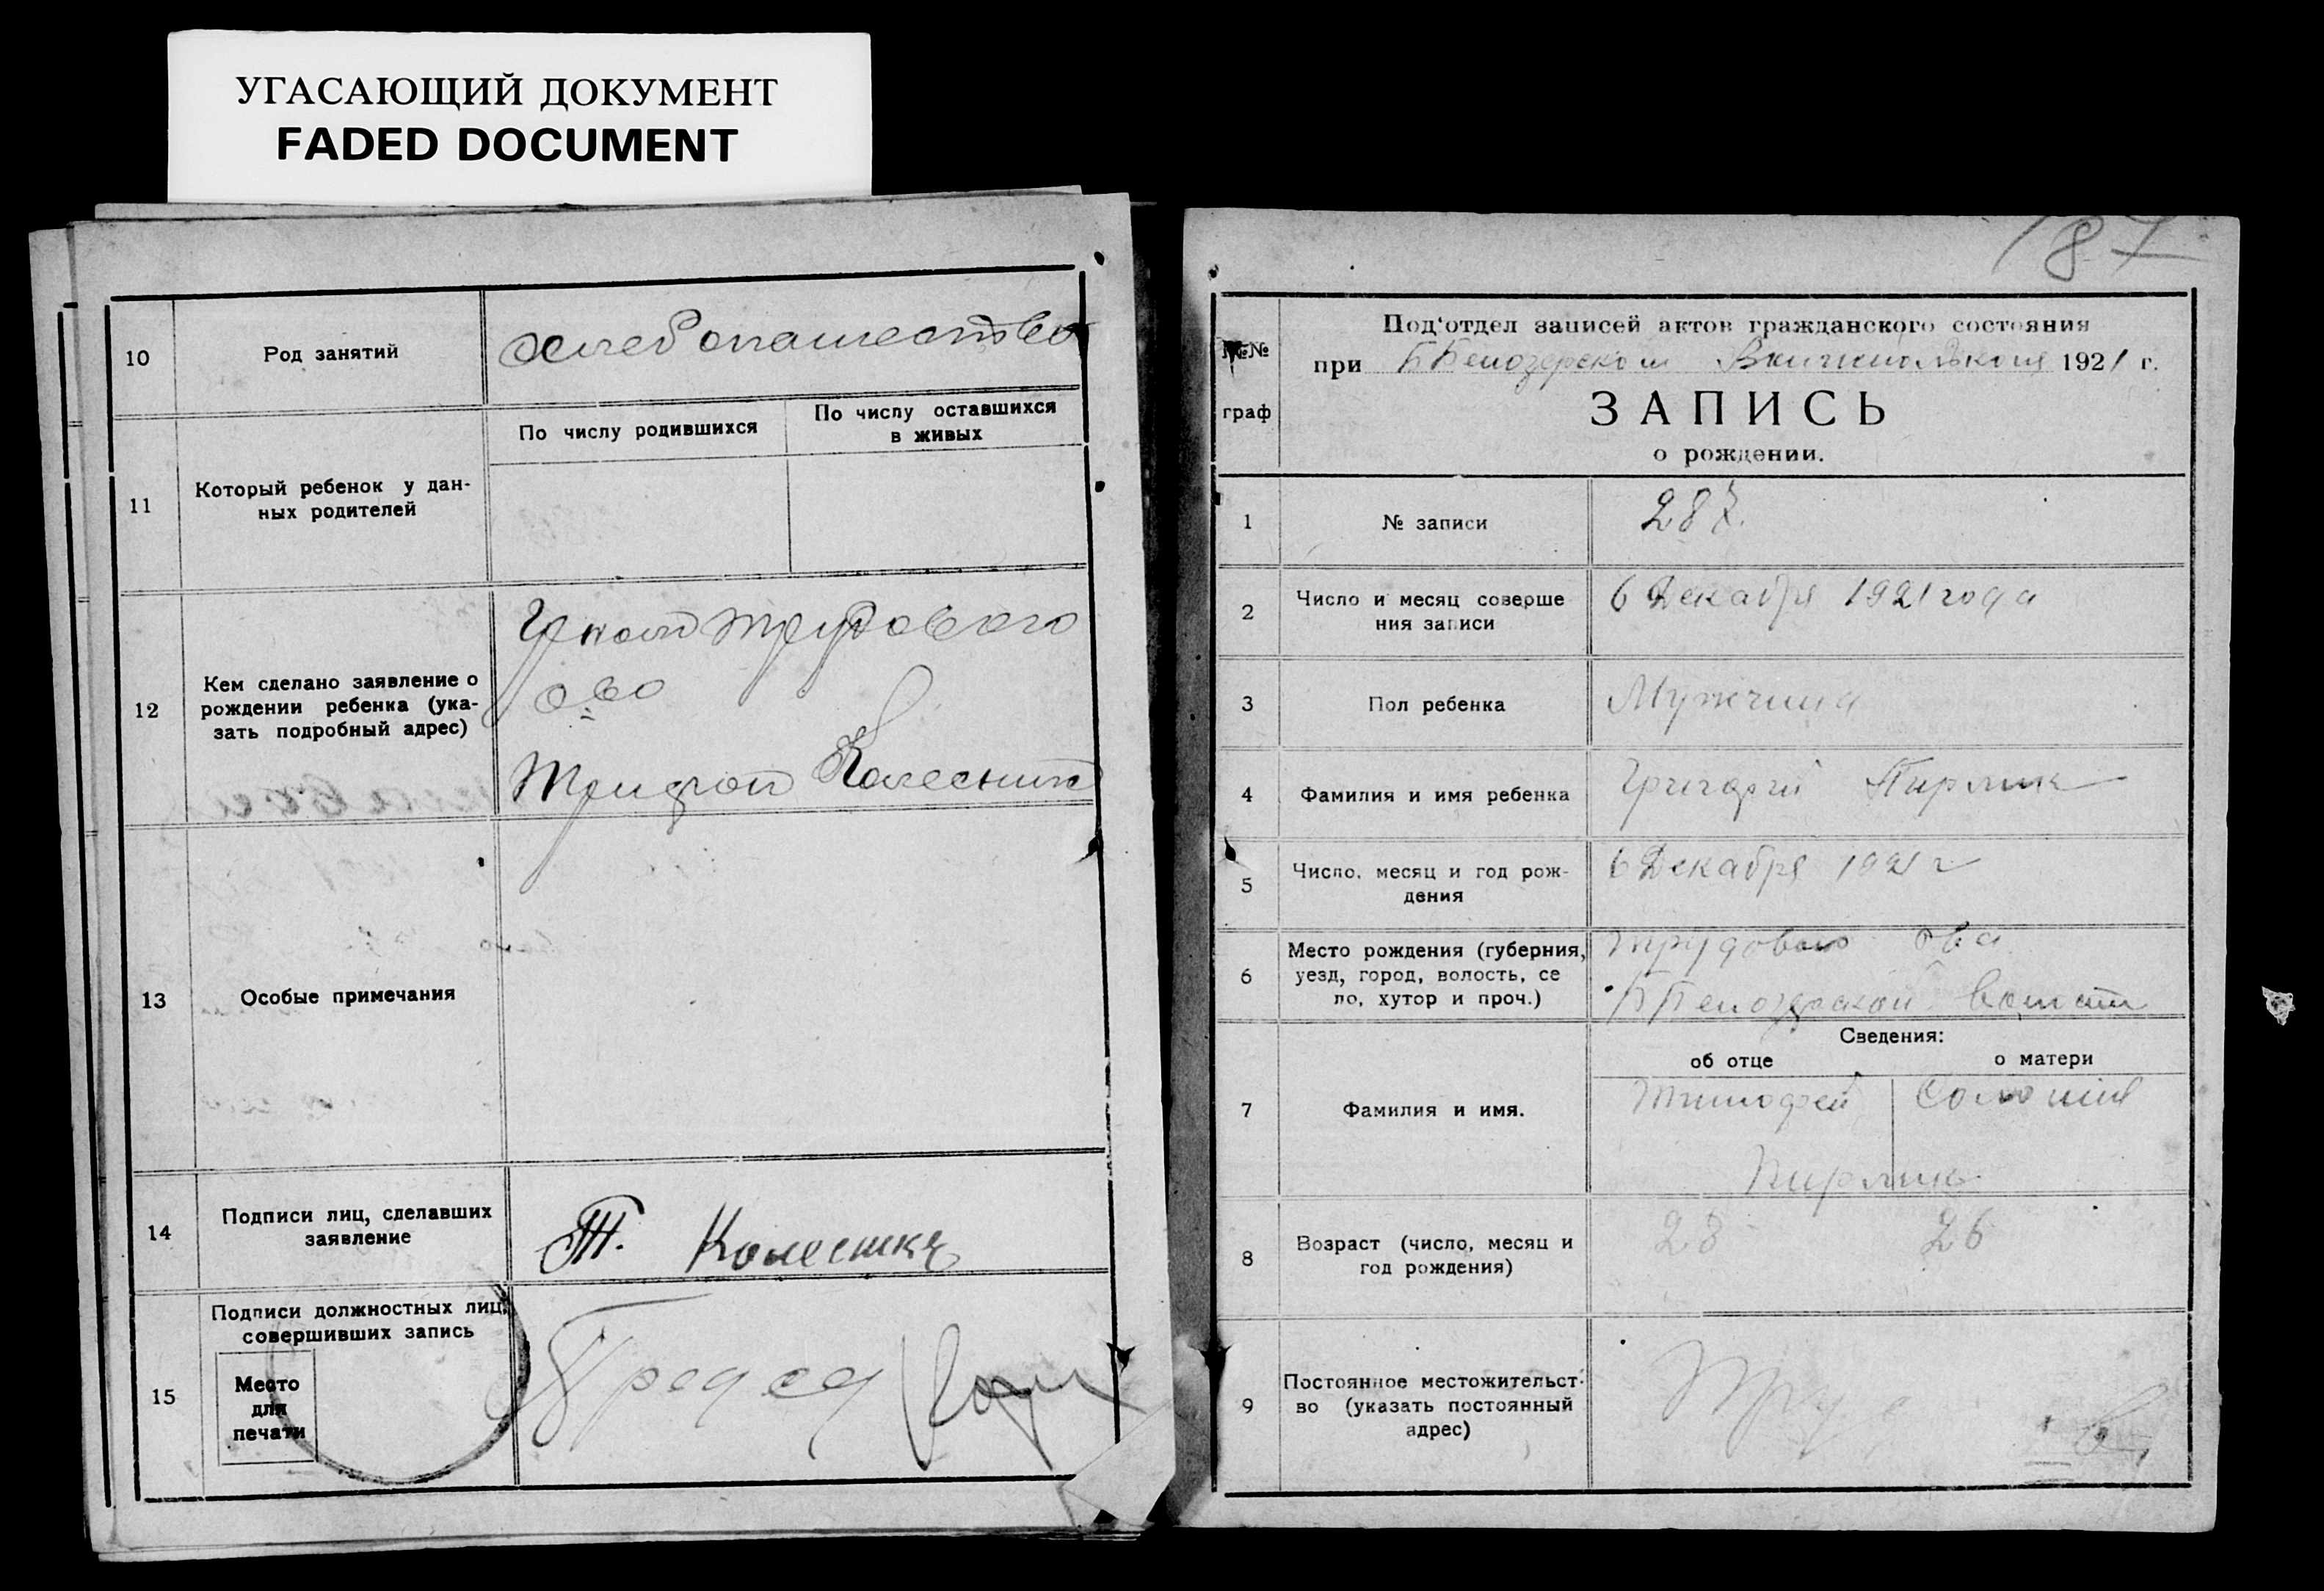 УГАСАЮЩИЙ ДОКУМЕНТ
FADED DOCUMENT
10
Род занятий
хлебопашество
11
Который ребенок у дан-
ных родителей
По числу родившихся
По числу оставшихся
в живых
12
Кем сделано заявление о
рождении ребенка (ука-
зать подробный адрес)
Трудового
о-во
Трифон Колесник
13
Особые примечания
14
Подписи лиц, сделавших
заявление
Т. Колесник
15
Подписи должностных лиц,
совершивших запись
Место
для
печати
Председ
187
№№
граф
Под'отдел записей актов гражданского состояния
при Б Белозерском 1921 г.
ЗАПИСЬ
о рождении.
1
№ записи
287.
2
Число и месяц соверше
ния записи
6 Декабря 1921 года
3
Пол ребенка
Мужчина
4
Фамилия и имя ребенка
Григорій Пирлик
5
Число, месяц и год рож-
дения
6 Декабря 1921 г
6
Место рождения (губерния,
уезд, город, волость, се
ло, хутор и проч.)
Трудового о-ва
Б Белозерской волости
Сведения:
об отце
о матери
7
Фамилия и имя.
Тимофей
Соломія
Пирлик
8
Возраст (число, месяц и
год рождения)
28
26
9
Постоянное местожительст-
во (указать постоянный
адрес)